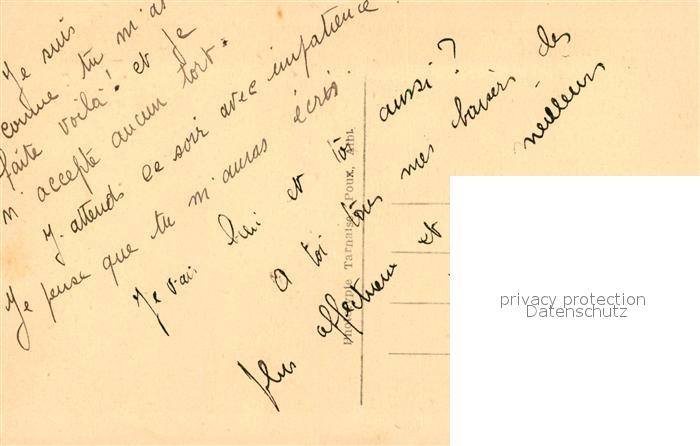 Je suis
comme tu m'as
faite voilà! et je
n'accepte aucun tort.
J'attends ce soir avec impatience.
Je pense que tu m'auras écris.
Je vais bien et toi aussi?
A toi tous mes baisers les
plus affectueux et meilleurs
Phototypie Tarnaise Poux, Albi
privacy protection
Datenschutz